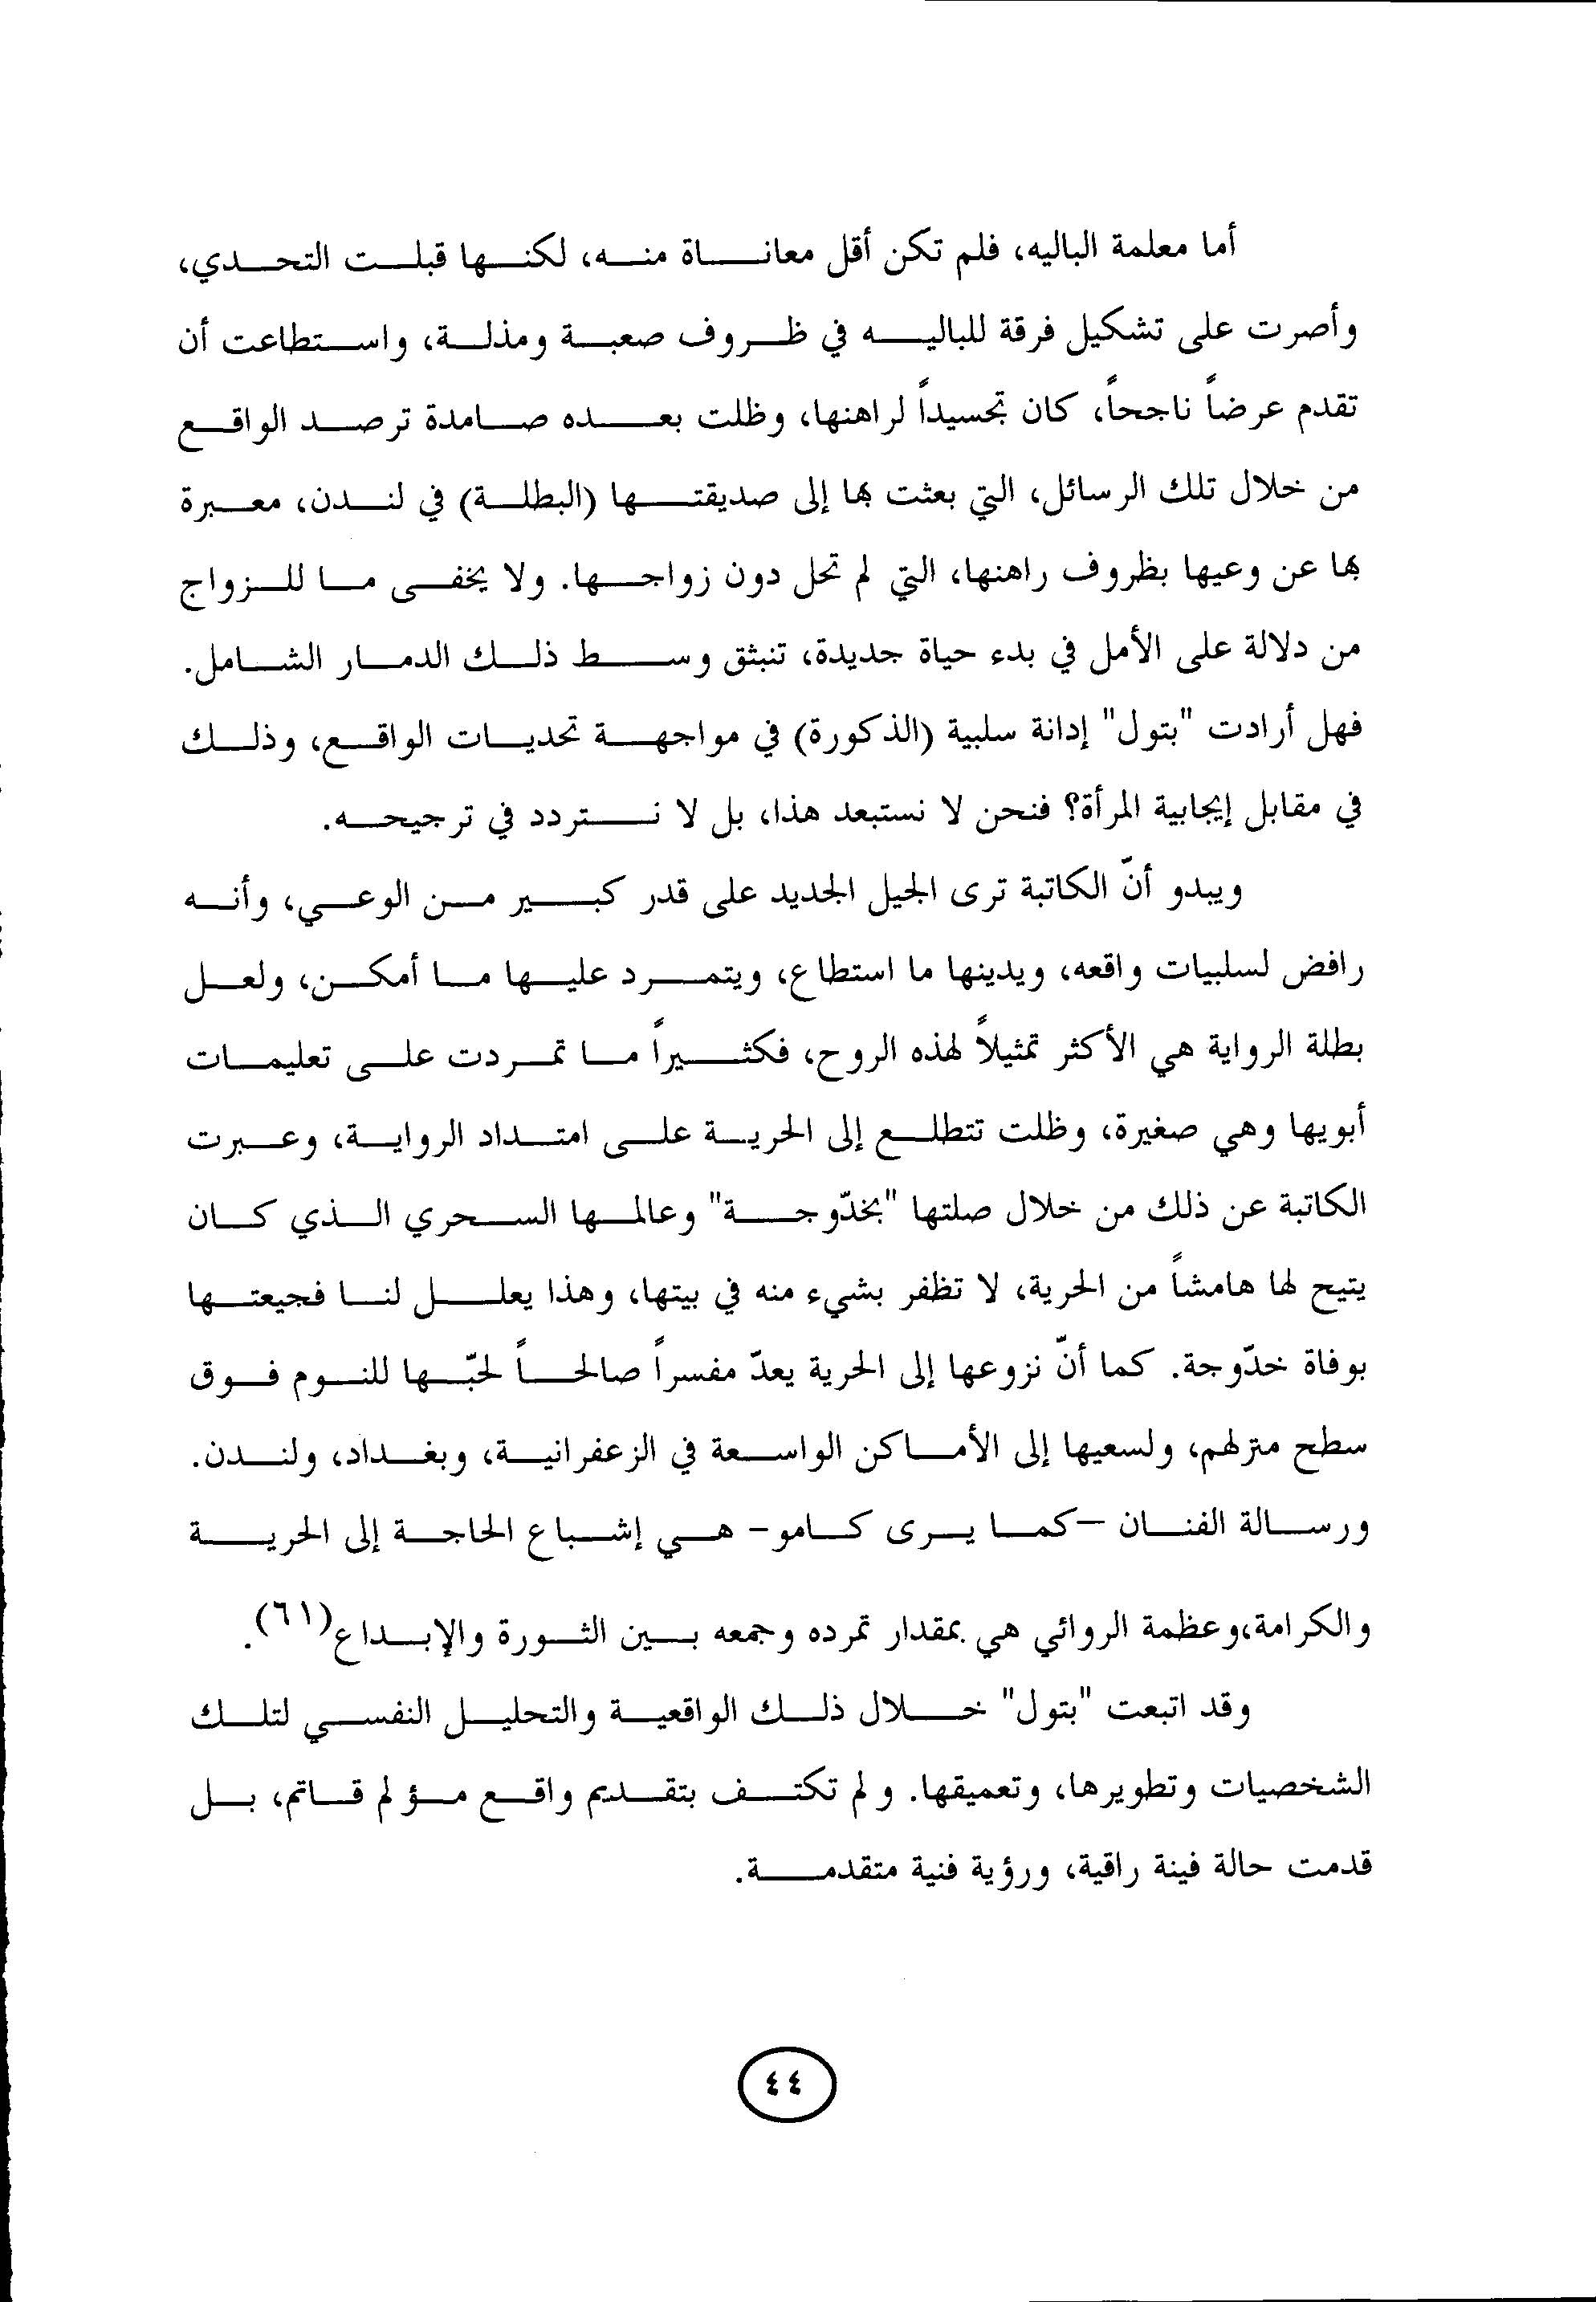 أما معلمة الباليه، فلم تكن أقل معاناة منه، لكنها قبلت التحدي،
وأصرت على تشكيل فرقة للباليه في ظروف صعبة ومذلة، واستطاعت أن
تقدم عرضاً ناجحاً، كان تجسيداً لراهنها، وظلت بعده صامدة ترصد الواقع
من خلال تلك الرسائل، التي بعثت بها إلى صديقتها (البطلة) في لندن، معبرة
بها عن وعيها بظروف راهنها، التي لم تحل دون زواجها. ولا يخفى ما للزواج
من دلالة على الأمل في بدء حياة جديدة، تنبثق وسط ذلك الدمار الشامل.
فهل أرادت "بتول" إدانة سلبية (الذكورة) في مواجهة تحديات الواقع، وذلك
في مقابل إيجابية المرأة؟ فنحن لا نستبعد هذا، بل لا نتردد في ترجيحه.
ويبدو أنّ الكاتبة ترى الجيل الجديد على قدر كبير من الوعي، وأنه
رافض لسلبيات واقعه، ويدينها ما استطاع، ويتمرد عليها ما أمكن، ولعل
بطلة الرواية هي الأكثر تمثيلاً لهذه الروح، فكثيراً ما تمردت على تعليمات
أبويها وهي صغيرة، وظلت تتطلع إلى الحرية على امتداد الرواية، وعبرت
الكاتبة عن ذلك من خلال صلتها "بخدّوجة" وعالمها السحري الذي كان
يتيح لها هامشاً من الحرية، لا تظفر بشيء منه في بيتها، وهذا يعلل لنا فجيعتها
بوفاة خدّوجة. كما أنّ نزوعها إلى الحرية يعدّ مفسراً صالحاً لحبّها للنوم فوق
سطح منزلهم، ولسعيها إلى الأماكن الواسعة في الزعفرانية، وبغداد، ولندن.
ورسالة الفنان –كما يرى كامو- هي إشباع الحاجة إلى الحرية
والكرامة،وعظمة الروائي هي بمقدار تمرده وجمعه بين الثورة والإبداع(٦١).
وقد اتبعت "بتول" خلال ذلك الواقعية والتحليل النفسي لتلك
الشخصيات وتطويرها، وتعميقها. ولم تكتف بتقديم واقع مؤلم قاتم، بل
قدمت حالة فينة راقية، ورؤية فنية متقدمة.
٤٤